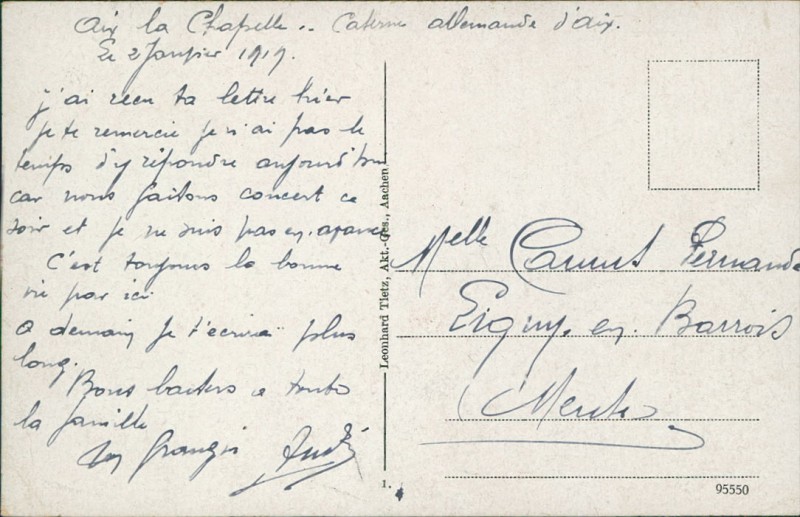 Aix la Chapelle.. Caserne allemande d'aix.
Le 2 Janvier 1919.
j'ai recu ta lettre hier
je te remercie je n'ai pas le
temps d'y répondre aujourd'hui
car nous faisons concert ce
soir et je ne suis pas en avance
C'est toujours la bonne
vie par ici
a demain je t'écrirai plus
long.
Bons baisers a toute
la famille
Ton frangin André
Leonhard Tietz, Akt.-Ges., Aachen.
Melle Camus Fernande
en Barrois
Meuse
1.
95550